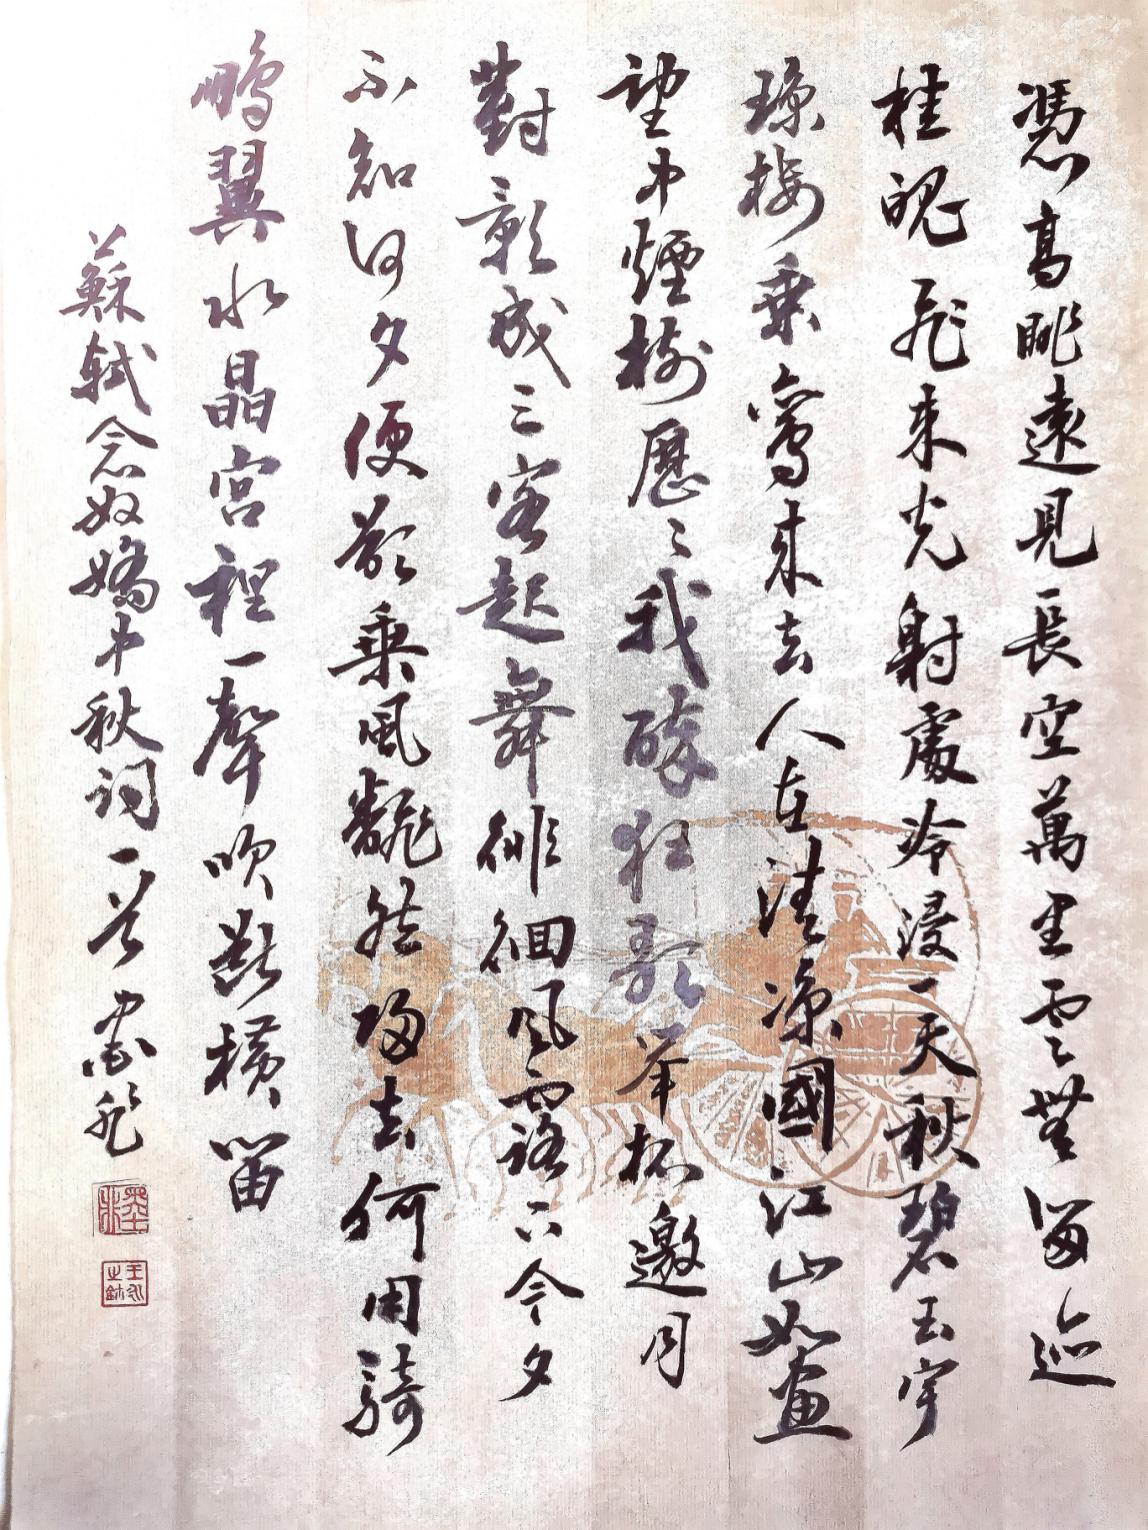 憑高眺遠見長空萬里雲無留迹
桂魄飛來光射處冷浸一天秋碧玉宇
瓊樓乘鸞來去人在清涼國江山如畫
望中煙樹歷〻我醉狂歌舉杯邀月
對影成三客起舞徘徊風露下今夕
不知何夕便欲乘風飜然歸去何用騎
鵬翼水晶宮裡一聲吹斷橫笛
蘇軾念奴嬌中秋詞一首